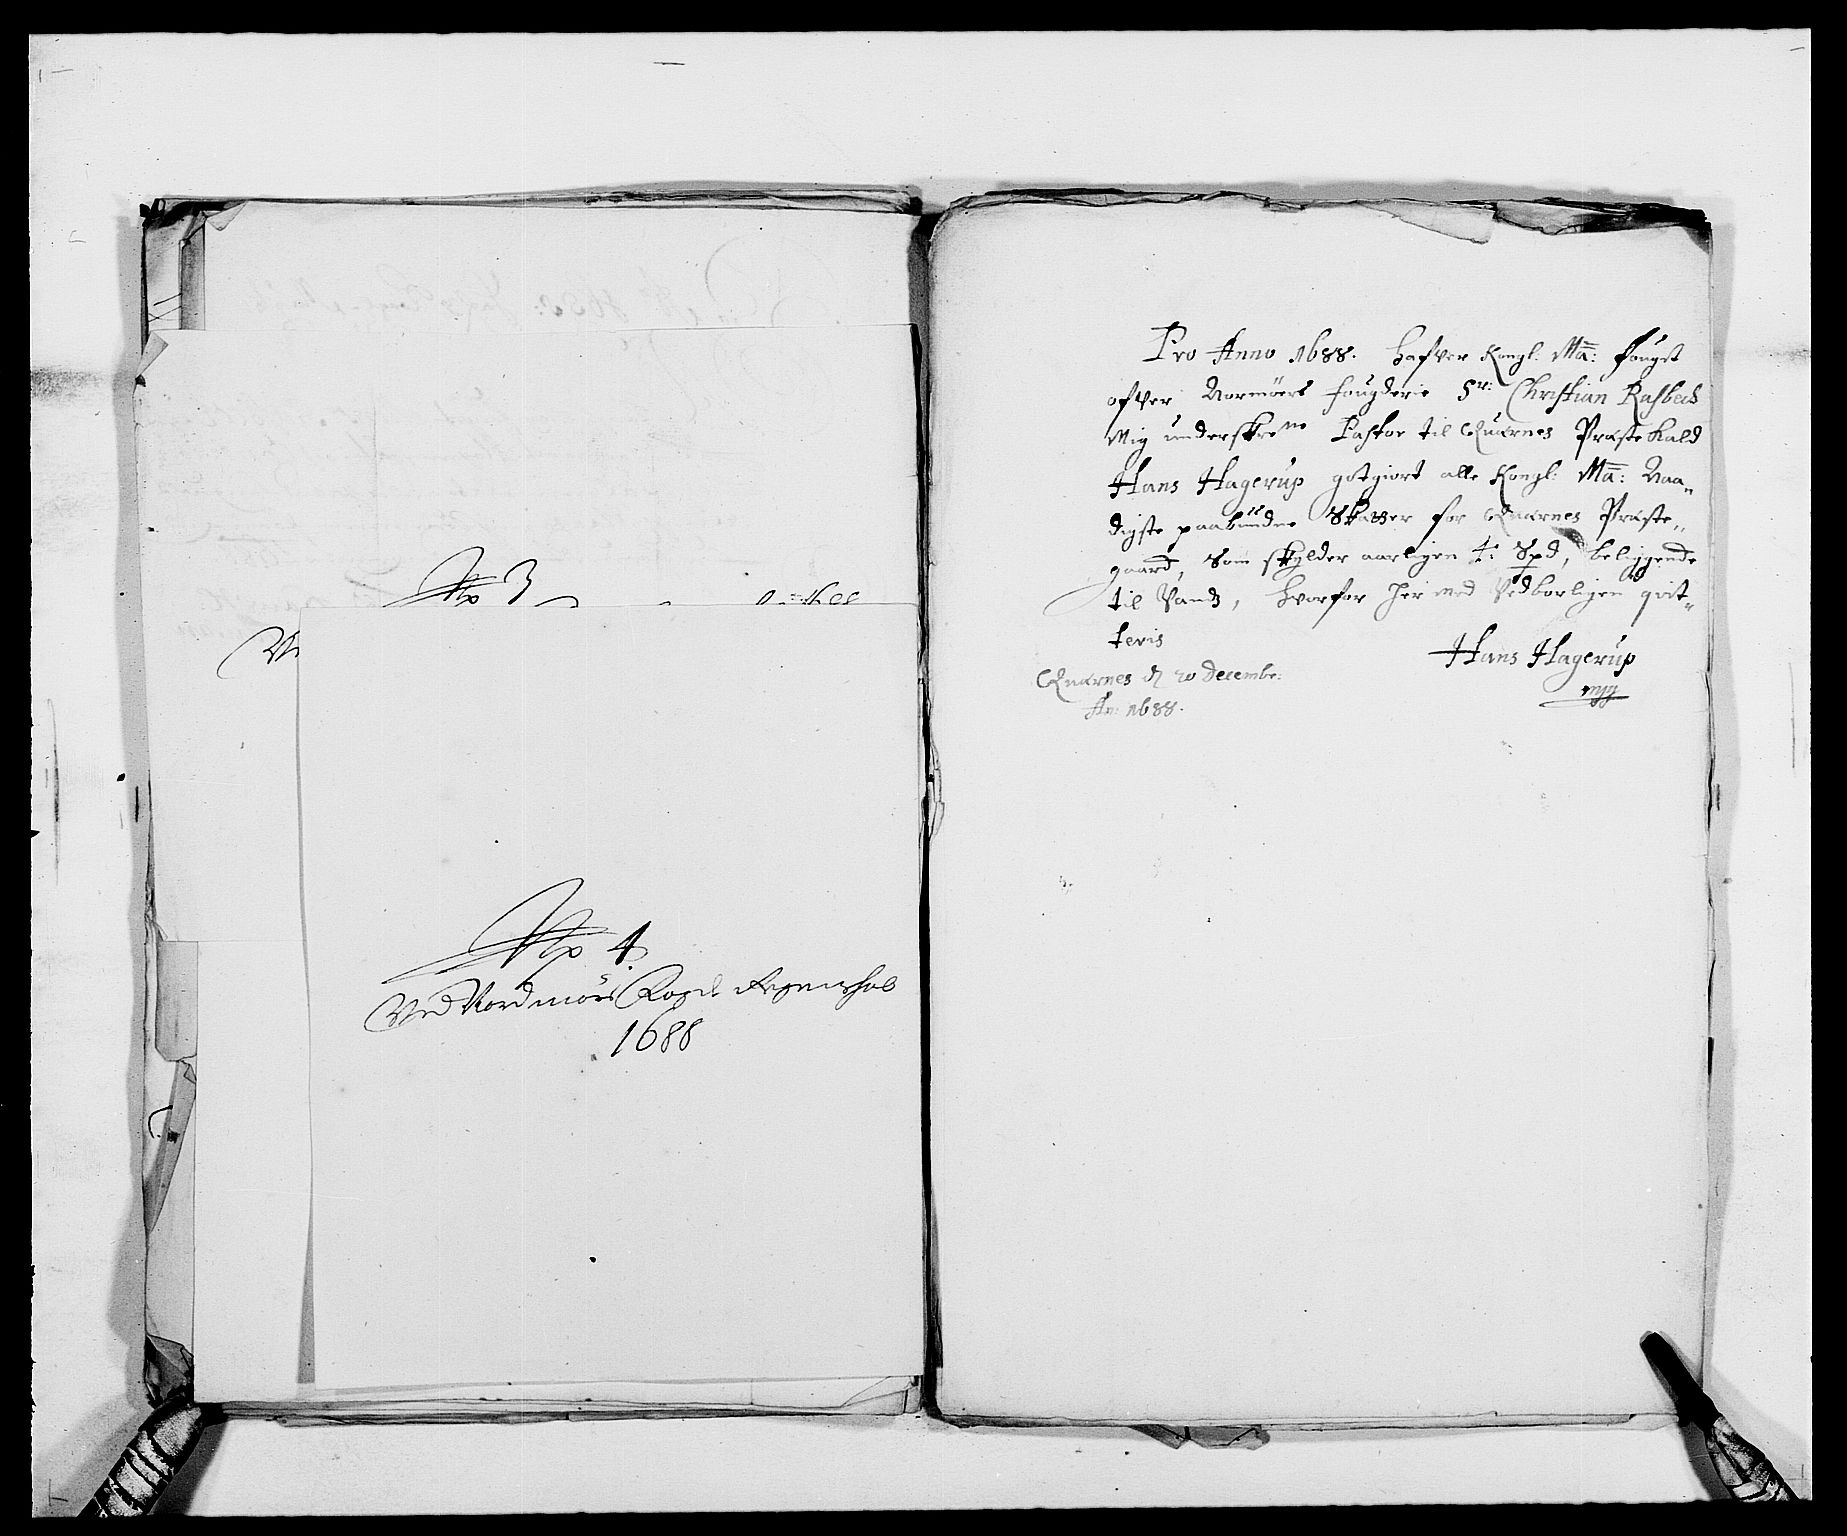 No 3
No 4
Ved Nordmørs Fogd. Regenschab
1688
Pro Anno 1688. Hafver Kongl: Ma: Fougt
ofver Normøers fougderie Sr: Christian Rasbech
Mig underskrefne Pastor til Quærnes Præste Kald
Hans Hagerup gotgiort alle Kongl: Ma: Naa-
digste paabudne Skatter for Quærnes Præste-
gaard, som skylder aarligen 4: Spd, beliggende
til Sands, hvorfor her med Vedborligen qvit-
teris
Hans Hagerup
mpp
Quærnes d 20 Decembr:
An: 1688.